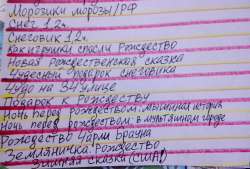 Морозики морозы/РФ
Снег 1,2.
Снеговик 1,2.
Как игрушки спасли Рождество
Новая Рождественская сказка
Чудесный подарок снеговика
Чудо на 34 улице
Подарок к Рождеству
Ночь перед рождеством: магазинная история
Ночь перед рождеством в мультяшном городе
Рождество Чарли Брауна
Земляничка, Рождество
Зимняя сказка (США)